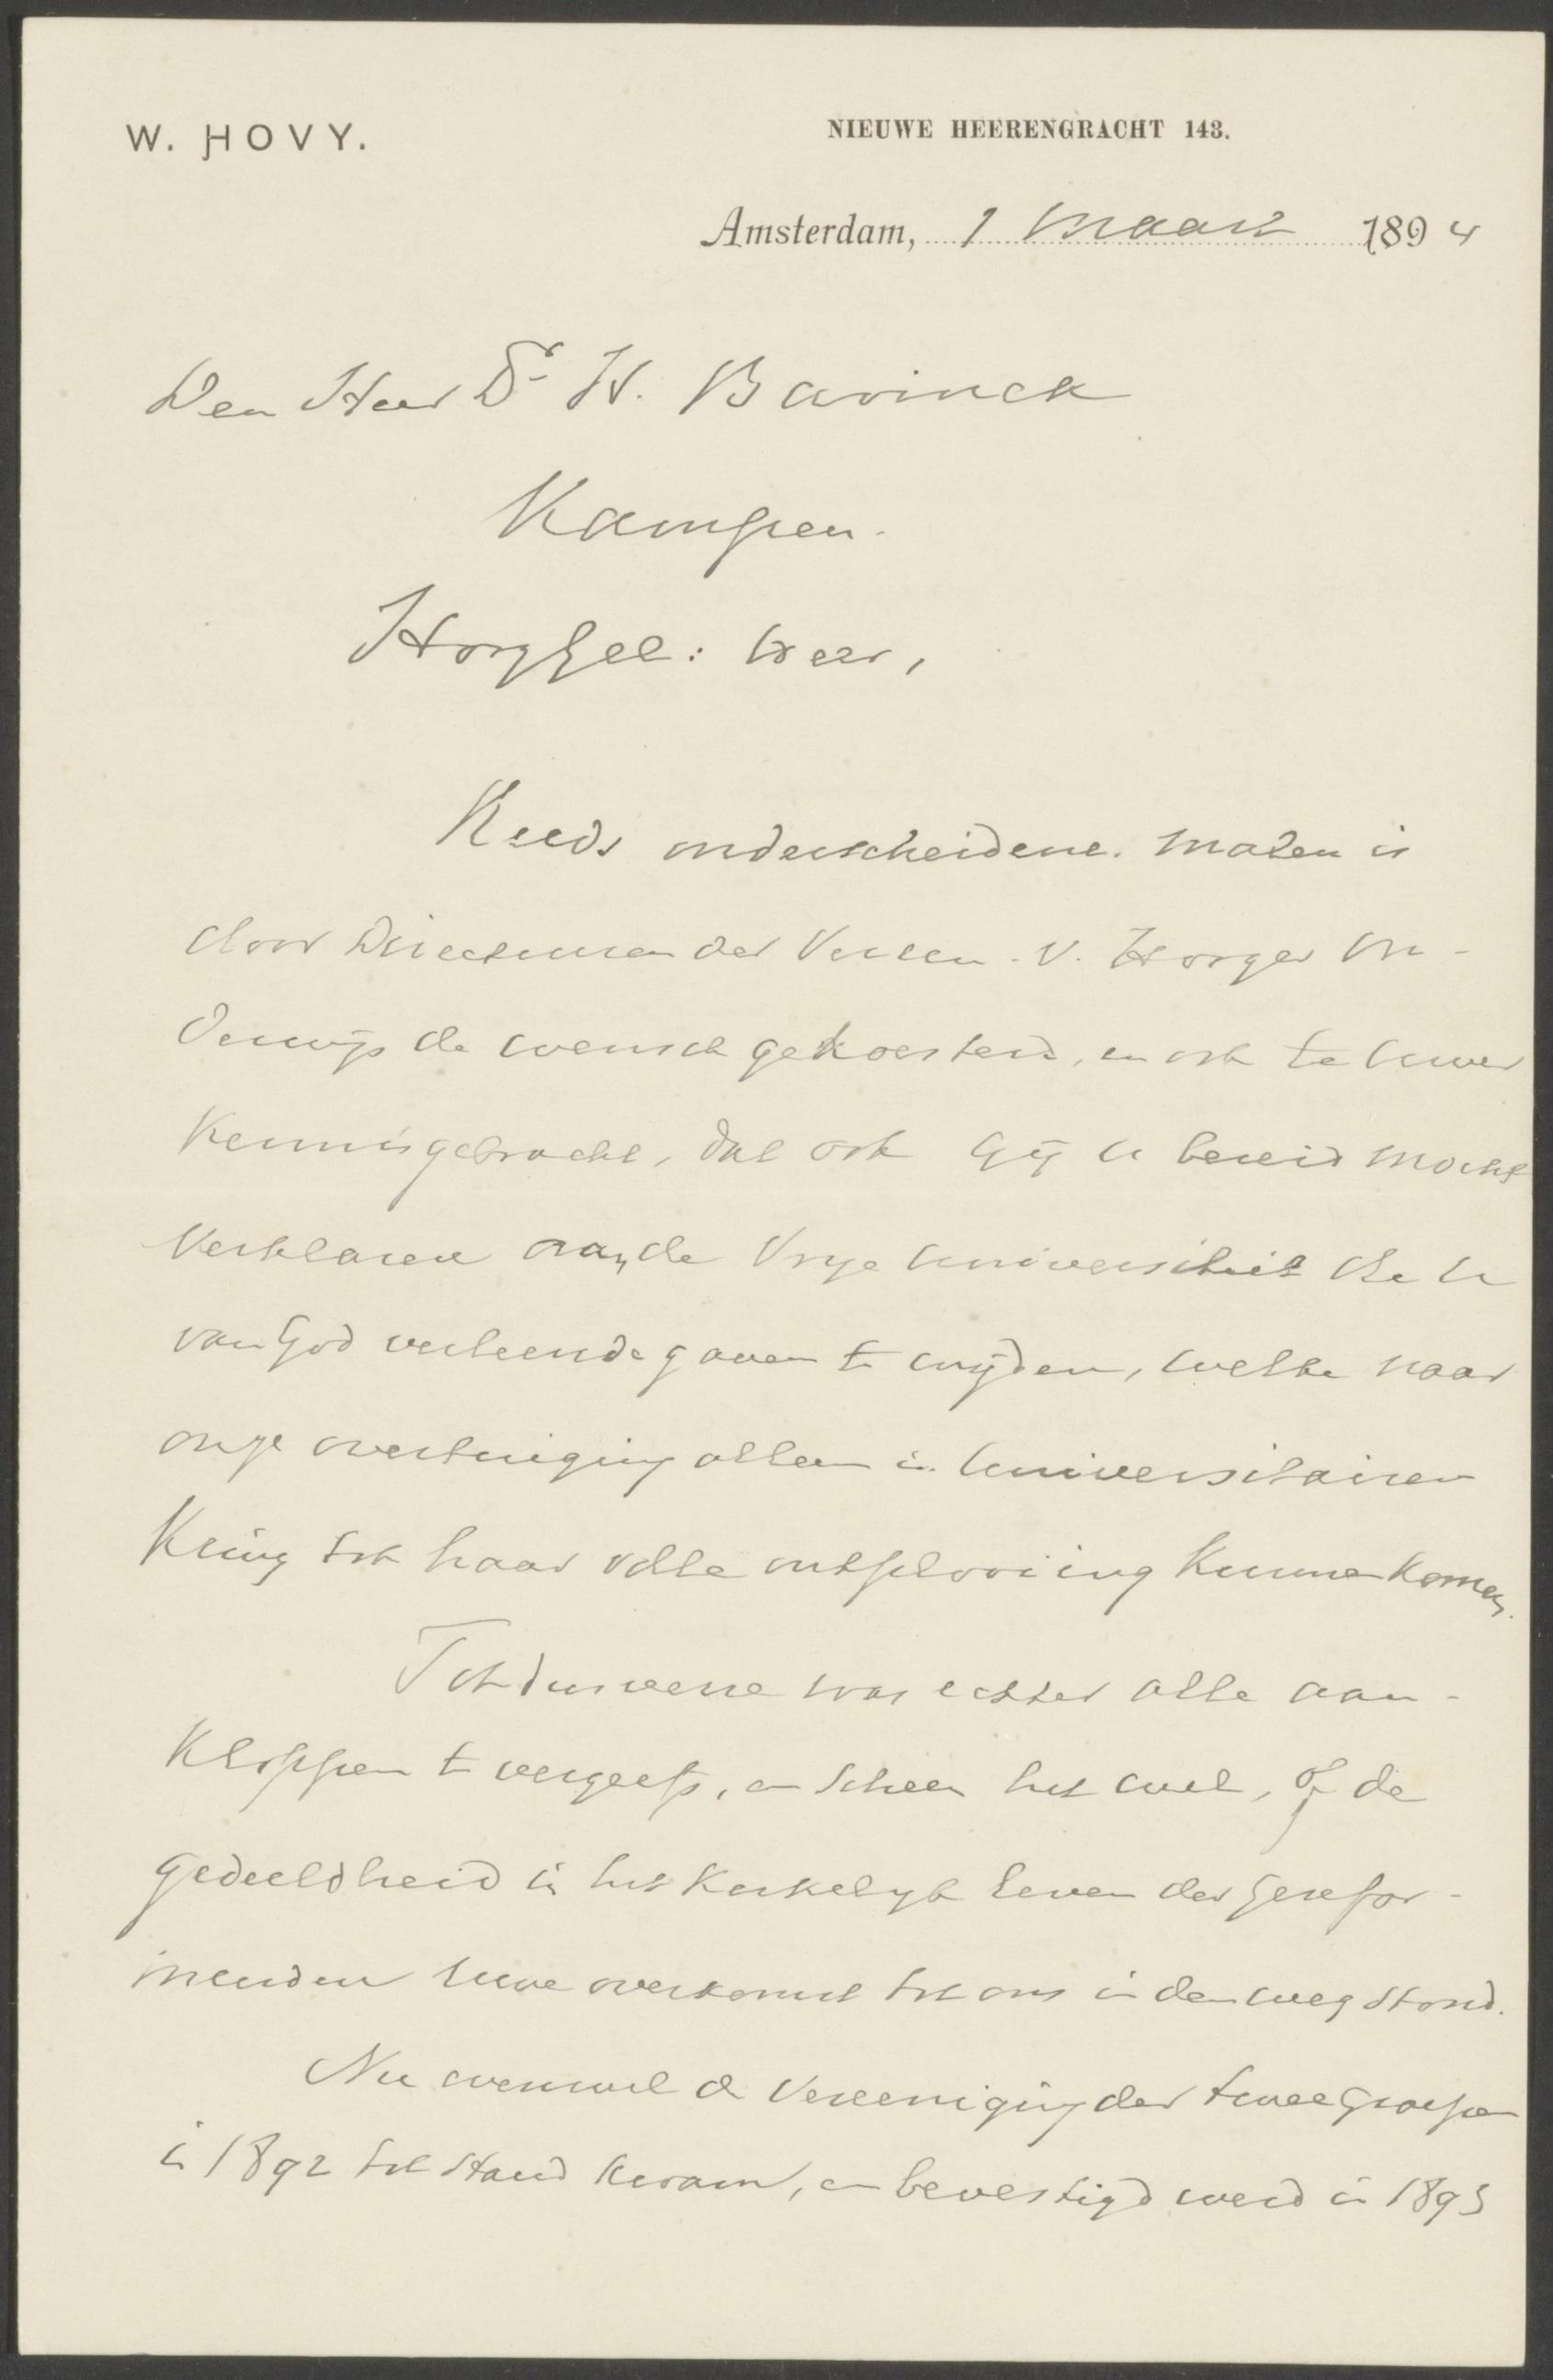 W. HOVY.
NIEUWE HEERENGRACHT 143.
Amsterdam, 1 Maart 1894
Den Heer Dr H. Bavinck
Kampen.
Hooggel: Heer,
Reeds onderscheidene malen is
door Directeuren der Vereen. v. Hooger On-
derwijs de wensch gekoesterd, en ook te Uwer
kennis gebracht, dat ook Gij U bereid mocht
verklaren aan de Vrije Universiteit de U
van God verleende gaven te wijden, welke naar
onze overtuiging alleen in Universitairen
Kring tot haar volle ontplooiing kunnen komen.
Tot dusverre was echter alle aan-
kloppen te vergeefs, en scheen het wel, of de
gedeeldheid in het Kerkelijk leven der Gerefor-
meerden Uwe overkomst tot ons in den weg stond.
Nu evenwel de Vereeniging der twee Groepen
in 1892 tot stand kwam, en bevestigd werd in 1893